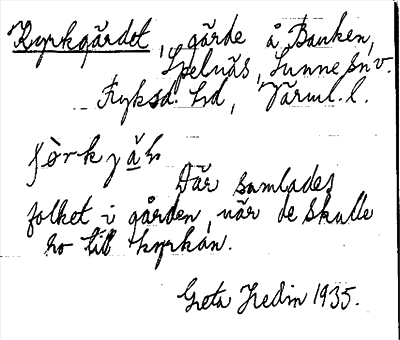 Kyrkgärdet, gärde å Backen,
Spelnäs, Sunne sn v.
Fryksd. hd, Värml. l.
Där samlades
folket i gården, när de skulle
ro till kyrkan.
Greta Hedin 1935.